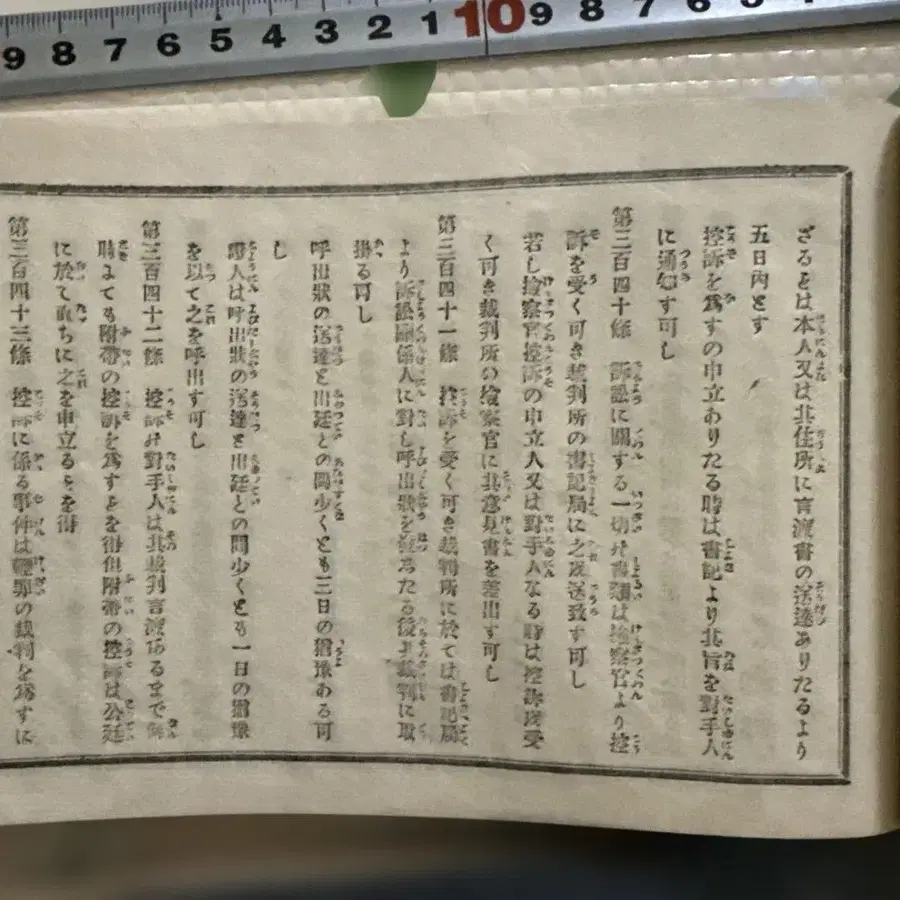 9 8 7 6 5 4 3 2 1 10 9 8 7 6 5
ざるときは本人又は其住所に言渡書の送達ありたるより
五日内とす
控訴を爲すの申立ありたる時は書記より其旨を對手人
に通知す可し
第三百四十條 訴訟に關する一切の書類は檢察官より控
訴を受く可き裁判所の書記局に之を送致す可し
若し檢察官控訴の申立人又は對手人なる時は控訴を受
く可き裁判所の檢察官に其意見書を差出す可し
第三百四十一條 控訴を受く可き裁判所に於ては書記局
より訴訟關係人に對し呼出狀を發したる後其裁判に取
掛る可し
呼出狀の送達と出廷との間少くとも三日の猶豫ある可
し
證人は呼出狀の送達と出廷との間少くとも一日の猶豫
を以て之を呼出す可し
第三百四十二條 控訴の對手人は其裁判言渡あるまで何
時にても附帶の控訴を爲すことを得但附帶の控訴は公廷
に於て直ちに之を申立ることを得
第三百四十三條 控訴に係る事件は輕罪の裁判を爲すに